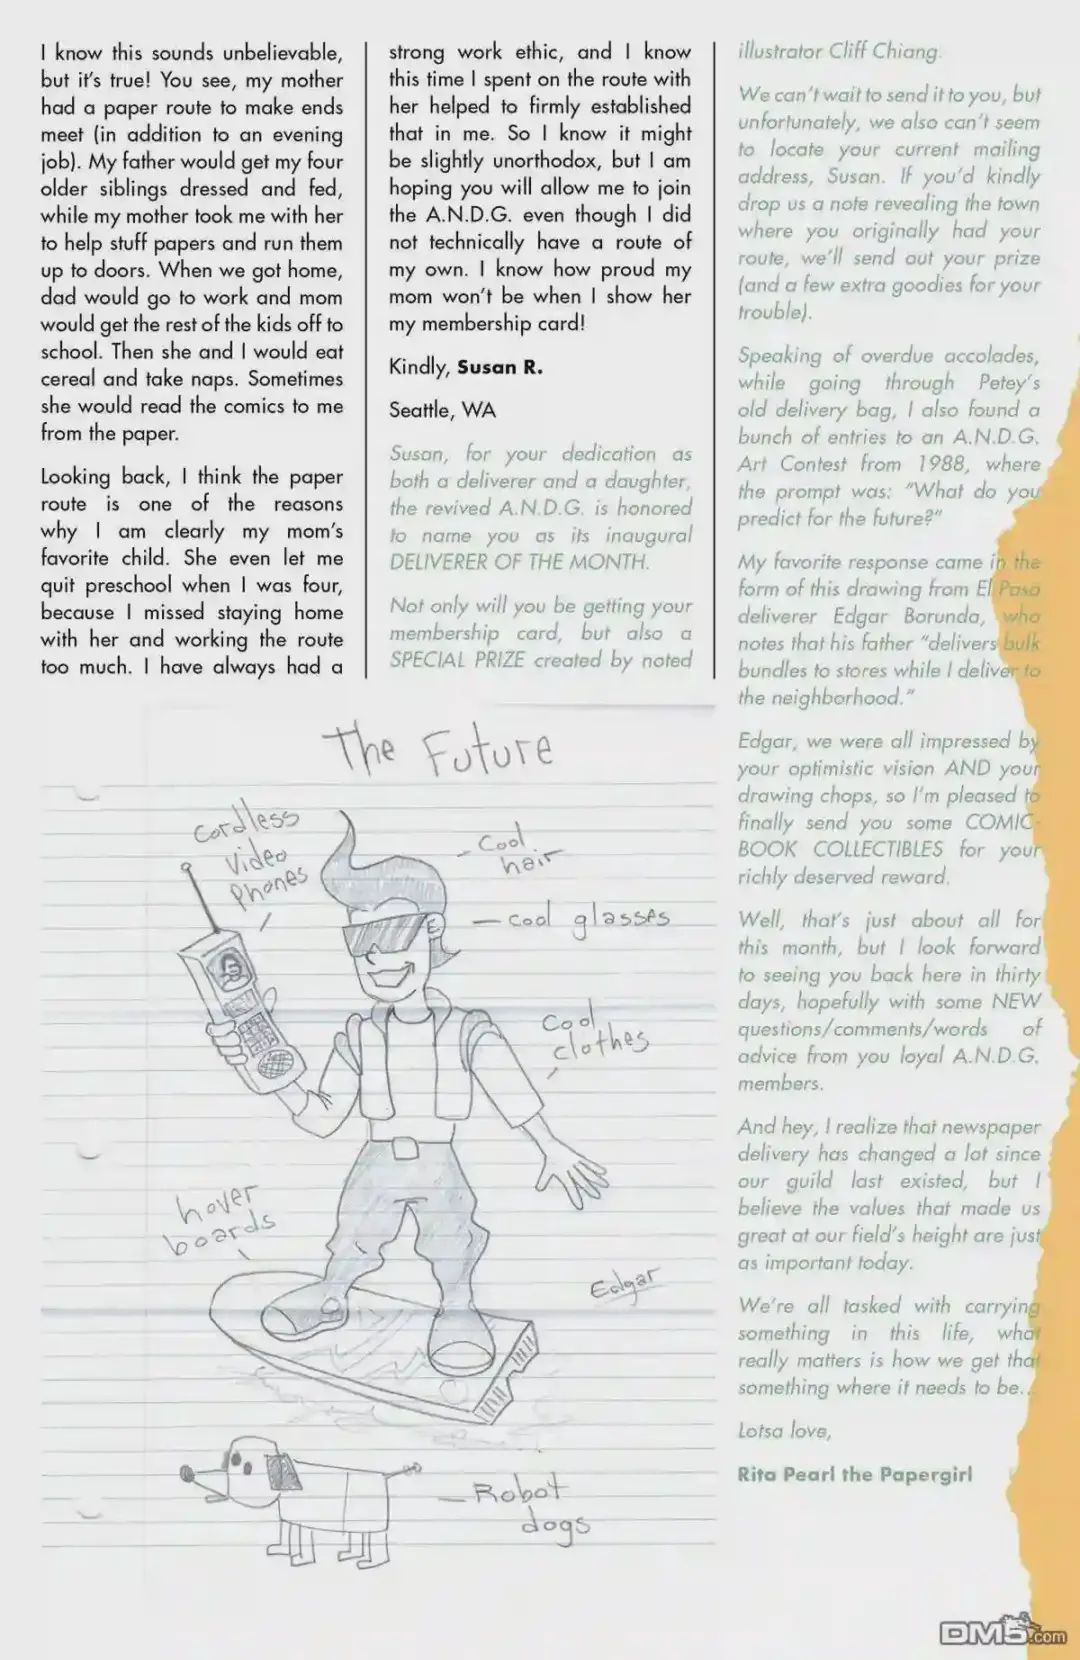 I know this sounds unbelievable,
but it's true! You see, my mother
had a paper route to make ends
meet (in addition to an evening
job). My father would get my four
older siblings dressed and fed,
while my mother took me with her
to help stuff papers and run them
up to doors. When we got home,
dad would go to work and mom
would get the rest of the kids off to
school. Then she and I would eat
cereal and take naps. Sometimes
she would read the comics to me
from the paper.
Looking back, I think the paper
route is one of the reasons
why I am clearly my mom's
favorite child. She even let me
quit preschool when I was four,
because I missed staying home
with her and working the route
too much. I have always had a
strong work ethic, and I know
this time I spent on the route with
her helped to firmly established
that in me. So I know it might
be slightly unorthodox, but I am
hoping you will allow me to join
the A.N.D.G. even though I did
not technically have a route of
my own. I know how proud my
mom won't be when I show her
my membership card!
Kindly, Susan R.
Seattle, WA
Susan, for your dedication as
both a deliverer and a daughter,
the revived A.N.D.G. is honored
to name you as its inaugural
DELIVERER OF THE MONTH.
Not only will you be getting your
membership card, but also a
SPECIAL PRIZE created by noted
illustrator Cliff Chiang.
We can't wait to send it to you, but
unfortunately, we also can't seem
to locate your current mailing
address, Susan. If you'd kindly
drop us a note revealing the town
where you originally had your
route, we'll send out your prize
(and a few extra goodies for your
trouble).
Speaking of overdue accolades,
while going through Petey's
old delivery bag, I also found a
bunch of entries to an A.N.D.G.
Art Contest from 1988, where
the prompt was: "What do you
predict for the future?"
My favorite response came in the
form of this drawing from El Paso
deliverer Edgar Borunda, who
notes that his father "delivers bulk
bundles to stores while I deliver to
the neighborhood."
Edgar, we were all impressed by
your optimistic vision AND your
drawing chops, so I'm pleased to
finally send you some COMIC-
BOOK COLLECTIBLES for your
richly deserved reward.
Well, that's just about all for
this month, but I look forward
to seeing you back here in thirty
days, hopefully with some NEW
questions/comments/words of
advice from you loyal A.N.D.G.
members.
And hey, I realize that newspaper
delivery has changed a lot since
our guild last existed, but I
believe the values that made us
great at our field's height are just
as important today.
We're all tasked with carrying
something in this life, what
really matters is how we get that
something where it needs to be...
Lotsa love,
Rita Pearl the Papergirl
The Future
Cordless
Video
Phones
Cool
hair
cool glasses
Cool
clothes
hover
boards
Edgar
Robot
dogs
DM5.com